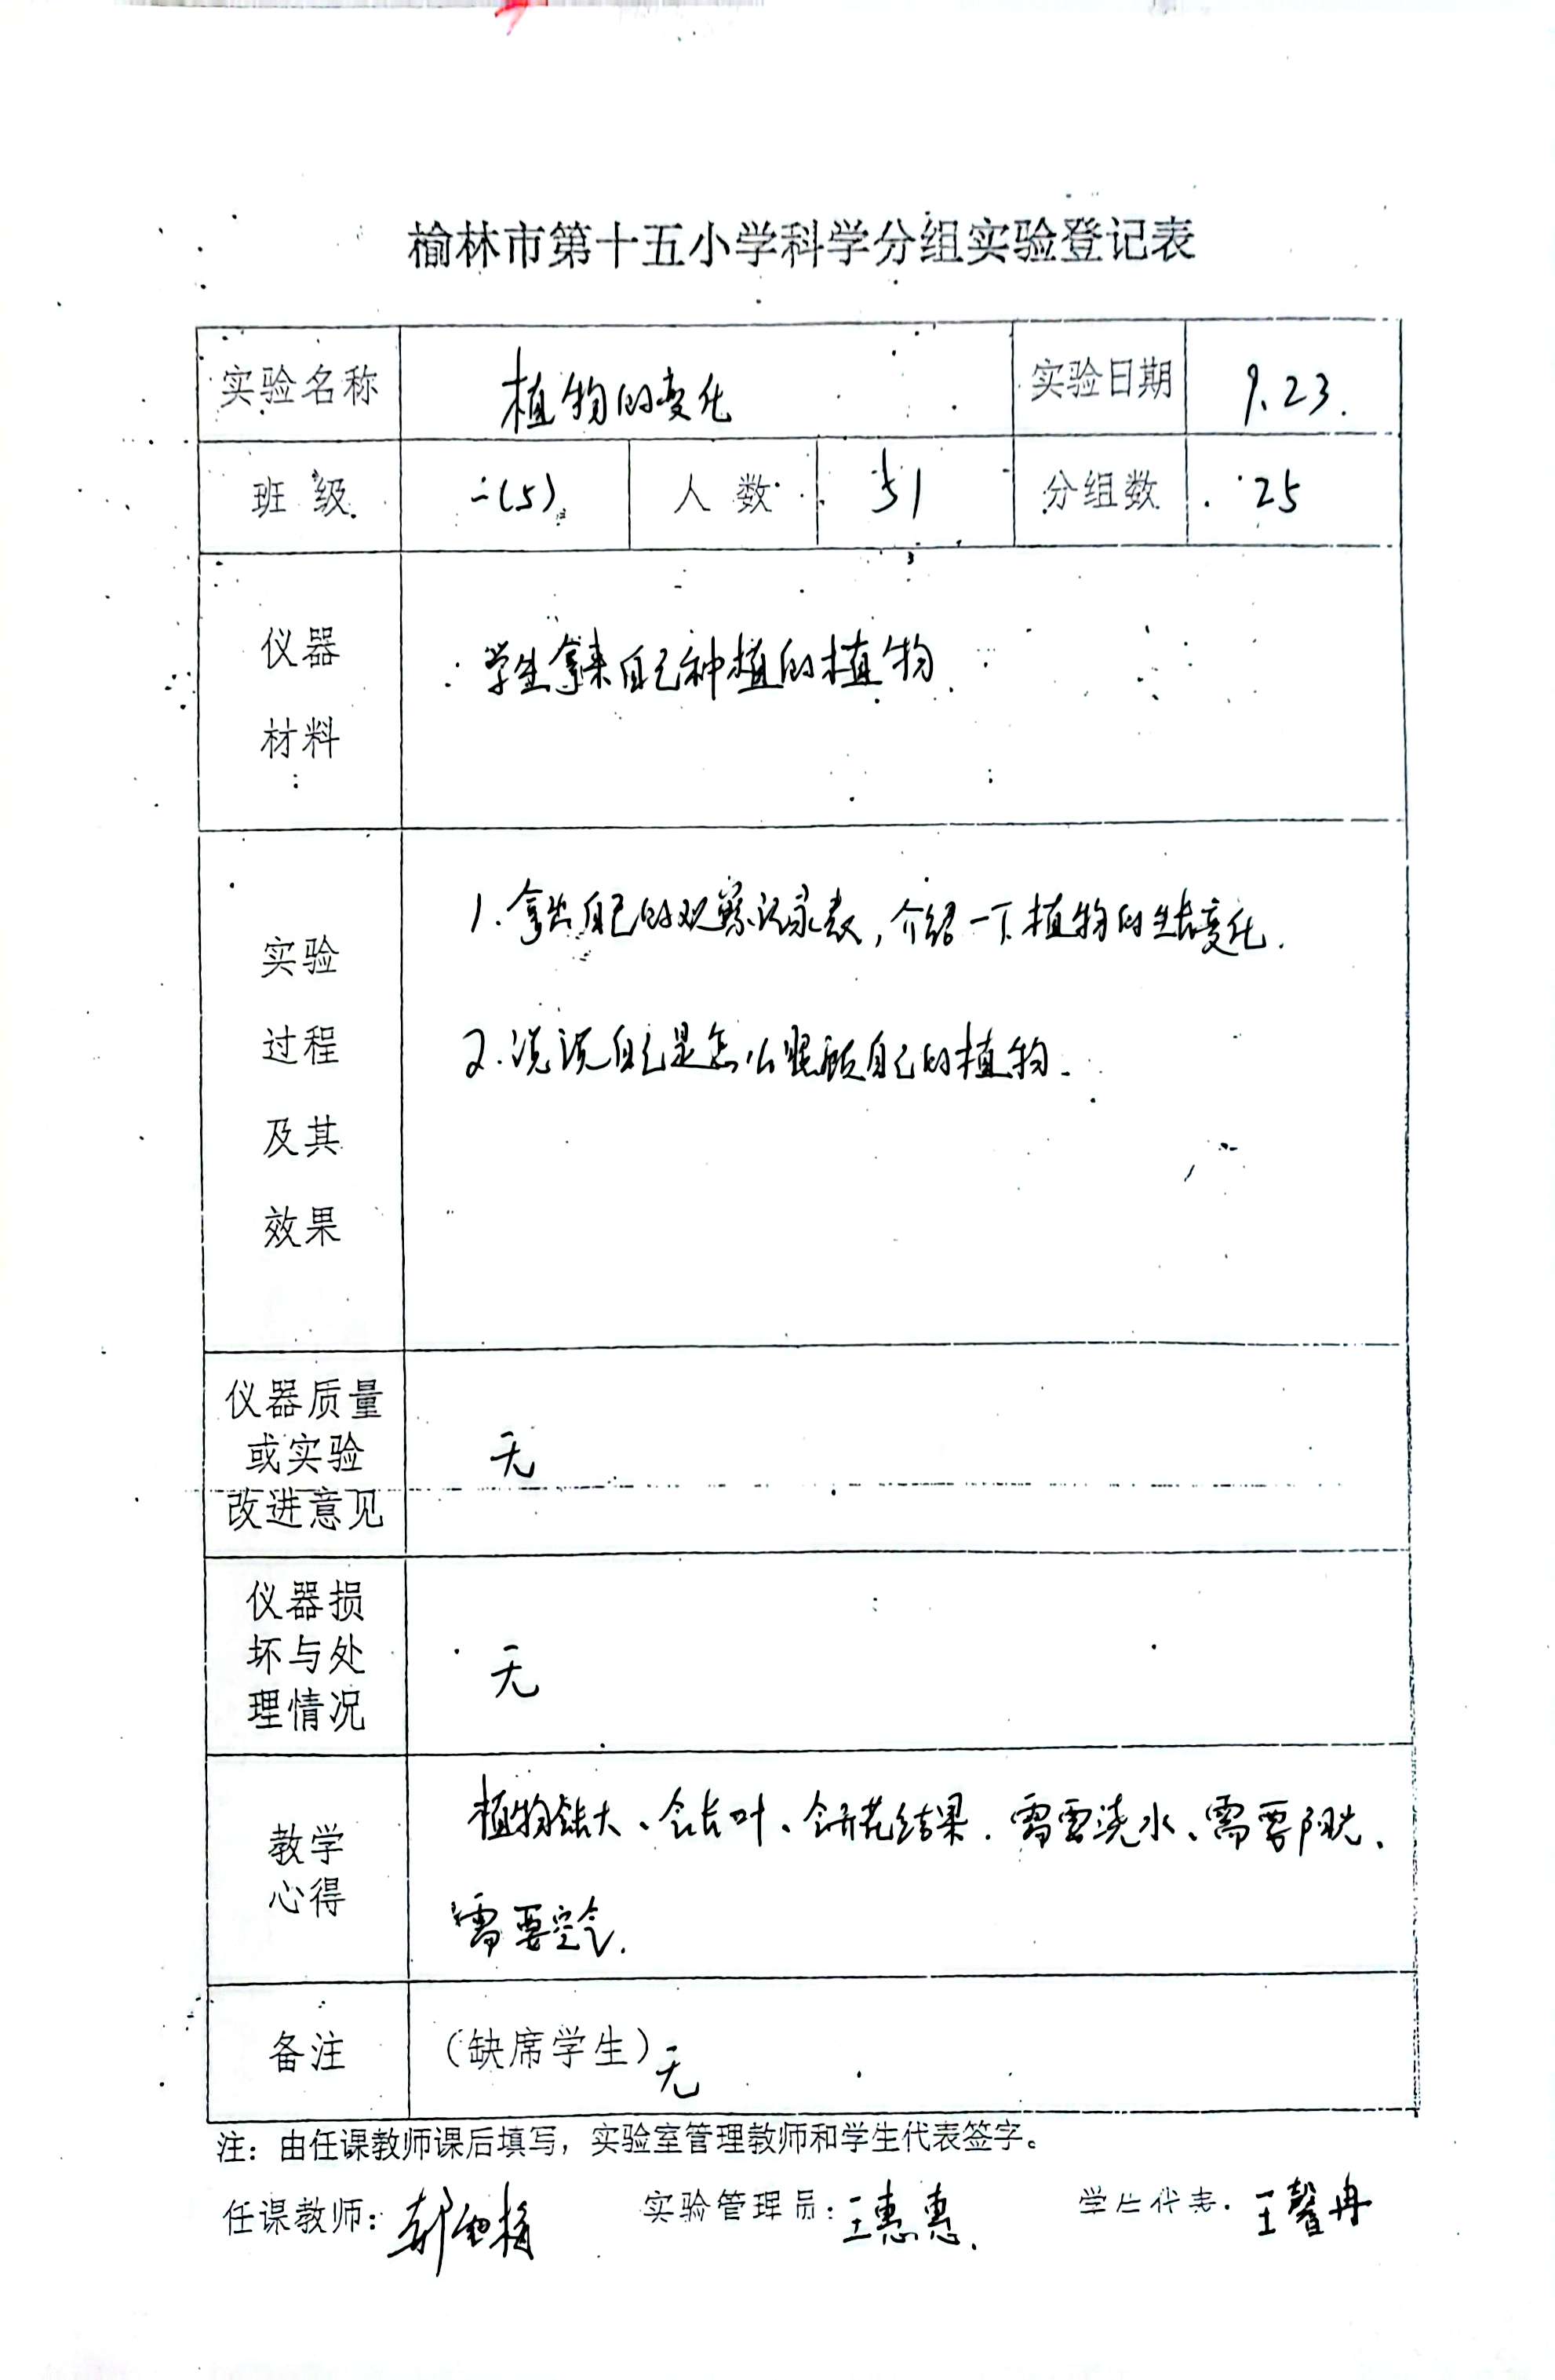 榆林市第十五小学科学分组实验登记表
实验名称 植物的变化 实验日期 9.23.
班 级 二(5) 人 数 51 分组数 25
仪器
材料
学生拿来自己种植的植物
实验
过程
及其
效果
1.拿出自己的观察记录表,介绍一下植物的生长变化.
2.说说自己是怎么照顾自己的植物.
仪器质量
或实验
改进意见
无
仪器损
坏与处
理情况
无
教学
心得
植物会长大、会长叶、会开花结果.需要浇水、需要阳光、
需要空气.
备注 (缺席学生)无
注：由任课教师课后填写，实验室管理教师和学生代表签字。
任课教师: 实验管理员:王惠惠. 学生代表. 王馨冉